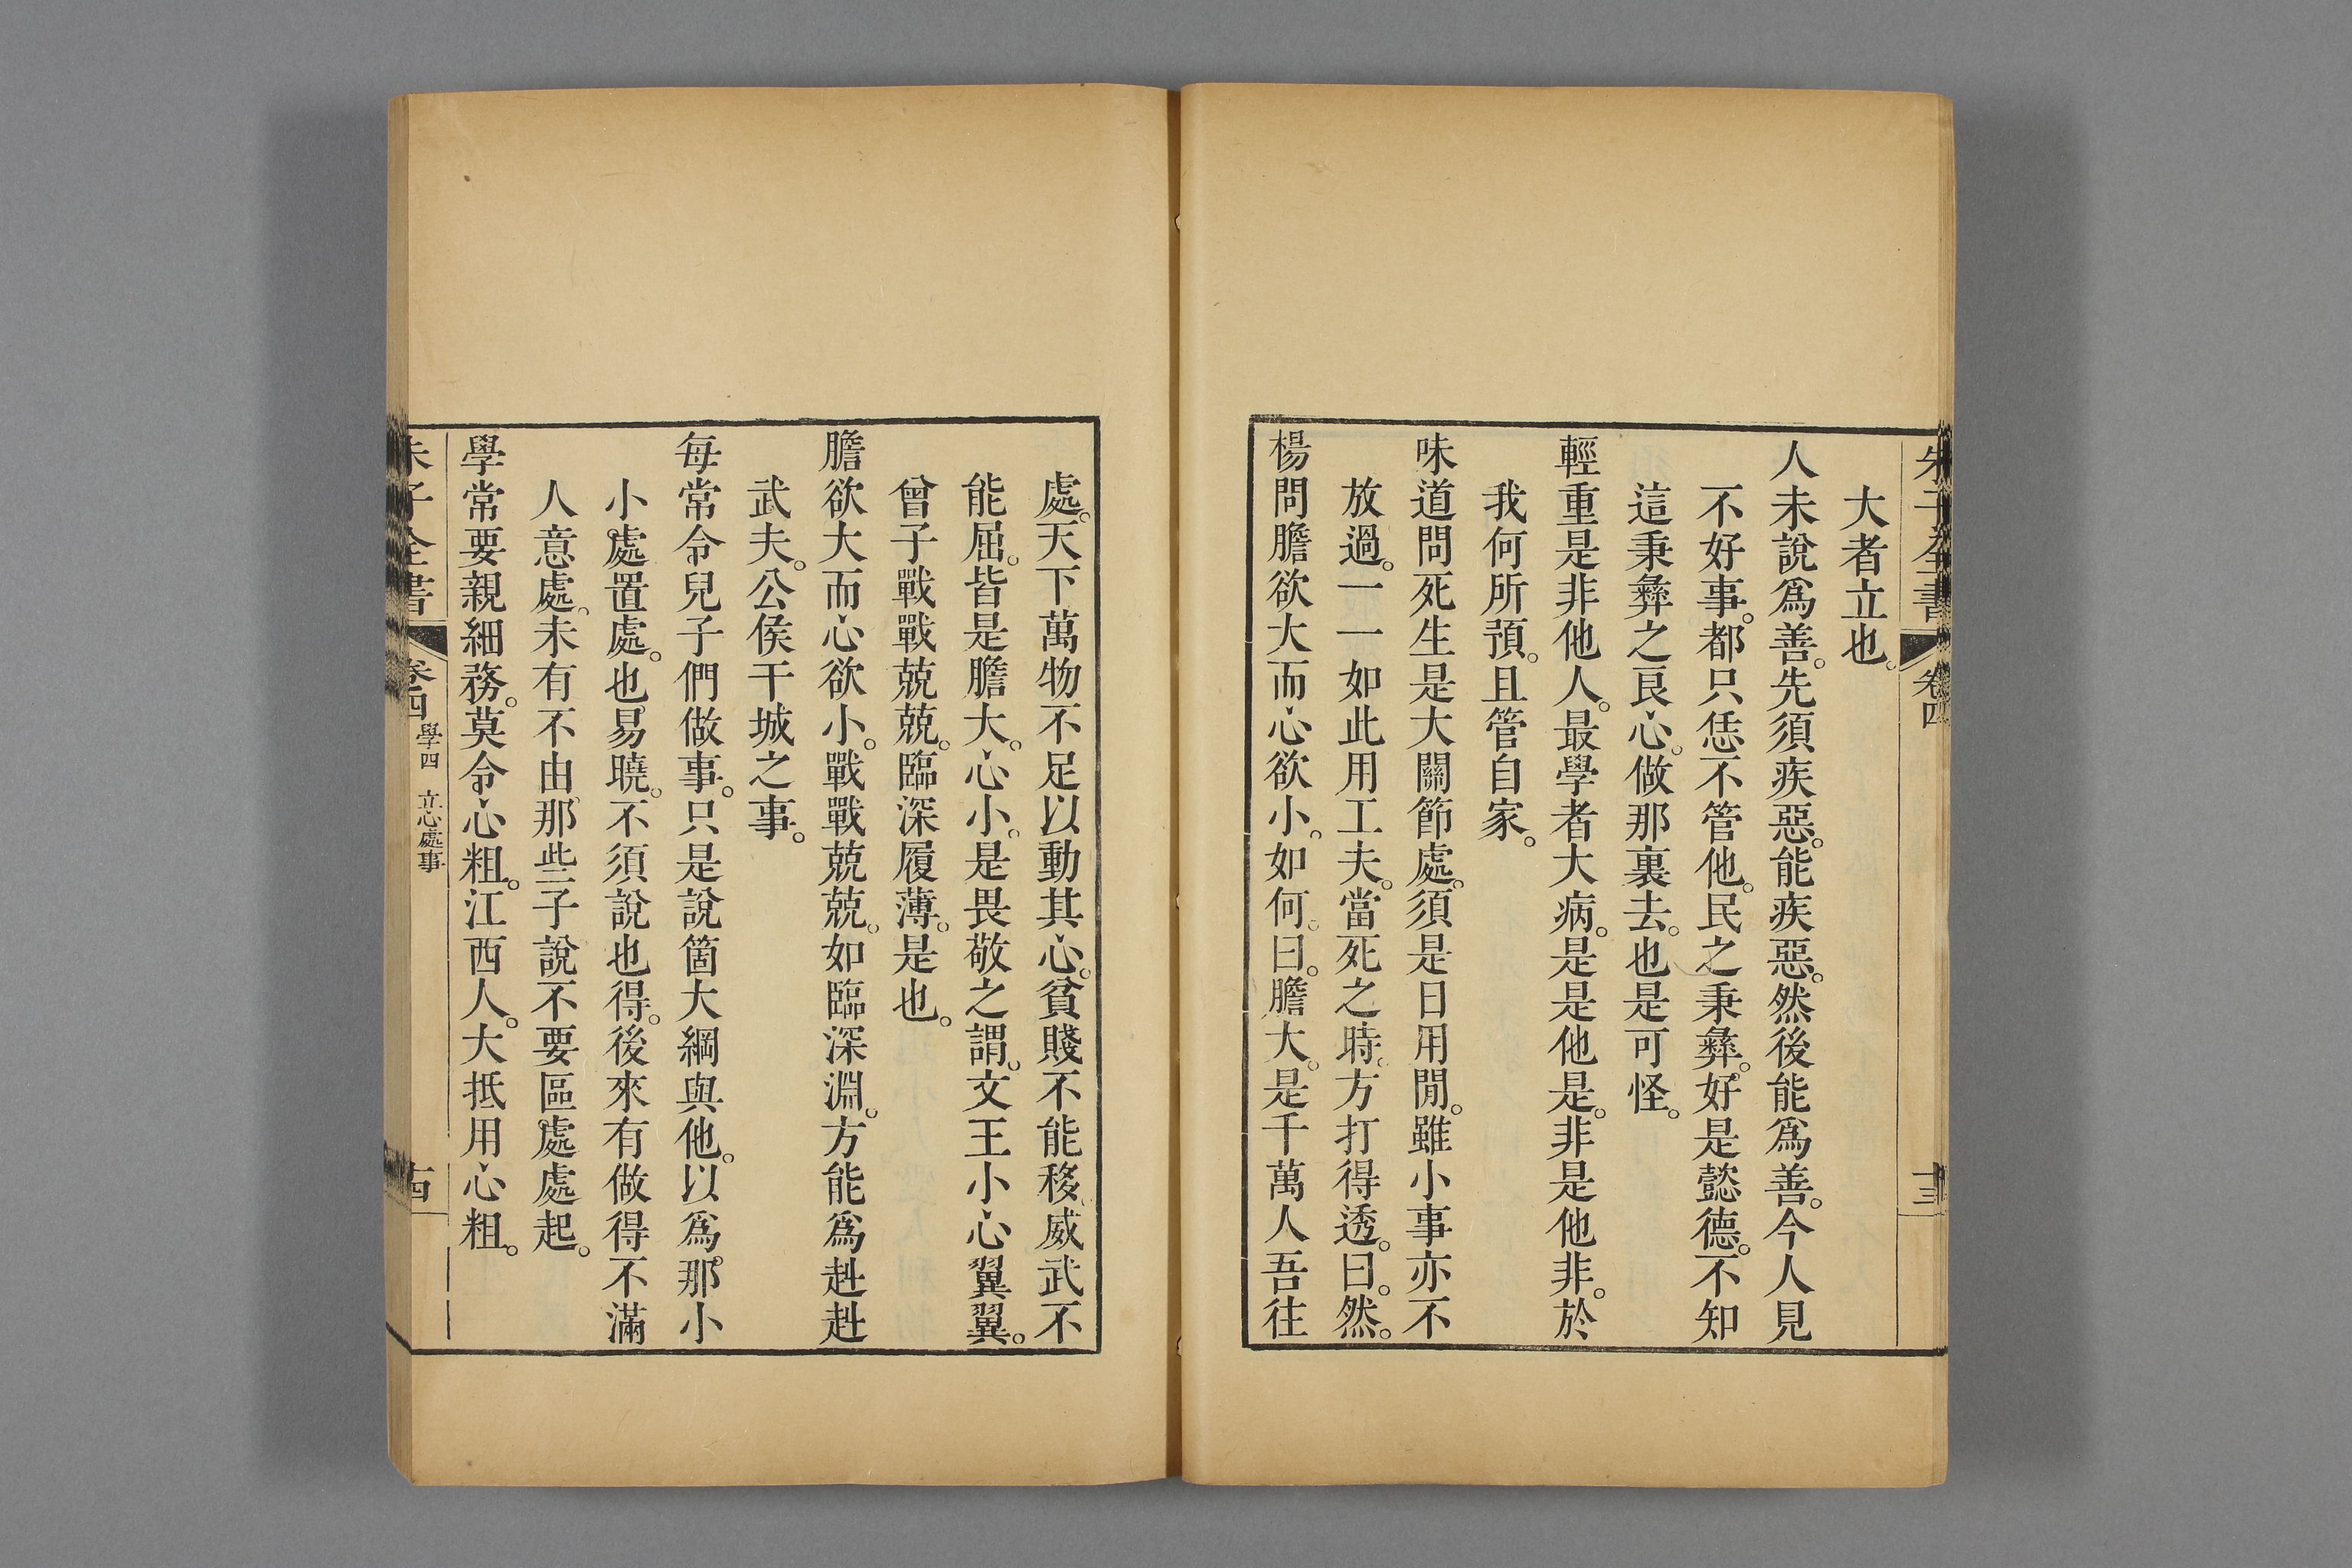 朱子全書 卷四 十三
大者立也。
人未說爲善。先須疾惡。能疾惡。然後能爲善。今人見
不好事。都只恁不管他。民之秉彝。好是懿德。不知
這秉彝之良心。做那裏去。也是可怪。
輕重是非他人。最學者大病。是是他是。非是他非。於
我何所預。且管自家。
味道問死生是大關節處。須是日用閒。雖小事亦不
放過。一一如此用工夫。當死之時。方打得透。曰。然。
楊問膽欲大而心欲小。如何。曰。膽大。是千萬人吾往
處。天下萬物不足以動其心。貧賤不能移。威武不
能屈。皆是膽大。心小。是畏敬之謂。文王小心翼翼。
曾子戰戰兢兢。臨深履薄。是也。
膽欲大而心欲小。戰戰兢兢。如臨深淵。方能爲赳赳
武夫。公侯干城之事。
每常令兒子們做事。只是說箇大綱與他。以爲那小
小處置處。也易曉。不須說也得。後來有做得不滿
人意處。未有不由那些子說不要區處處起。
學常要親細務。莫令心粗。江西人。大抵用心粗。
朱子全書 卷四 學四 立心處事 十四